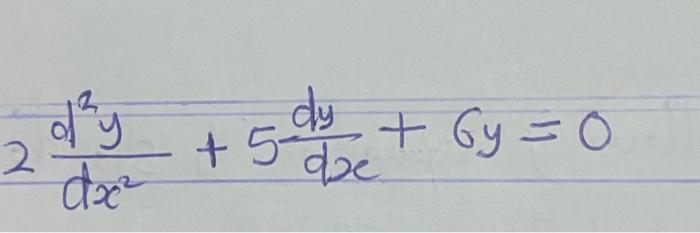 2 d²y/dx² + 5 dy/dx + 6y = 0